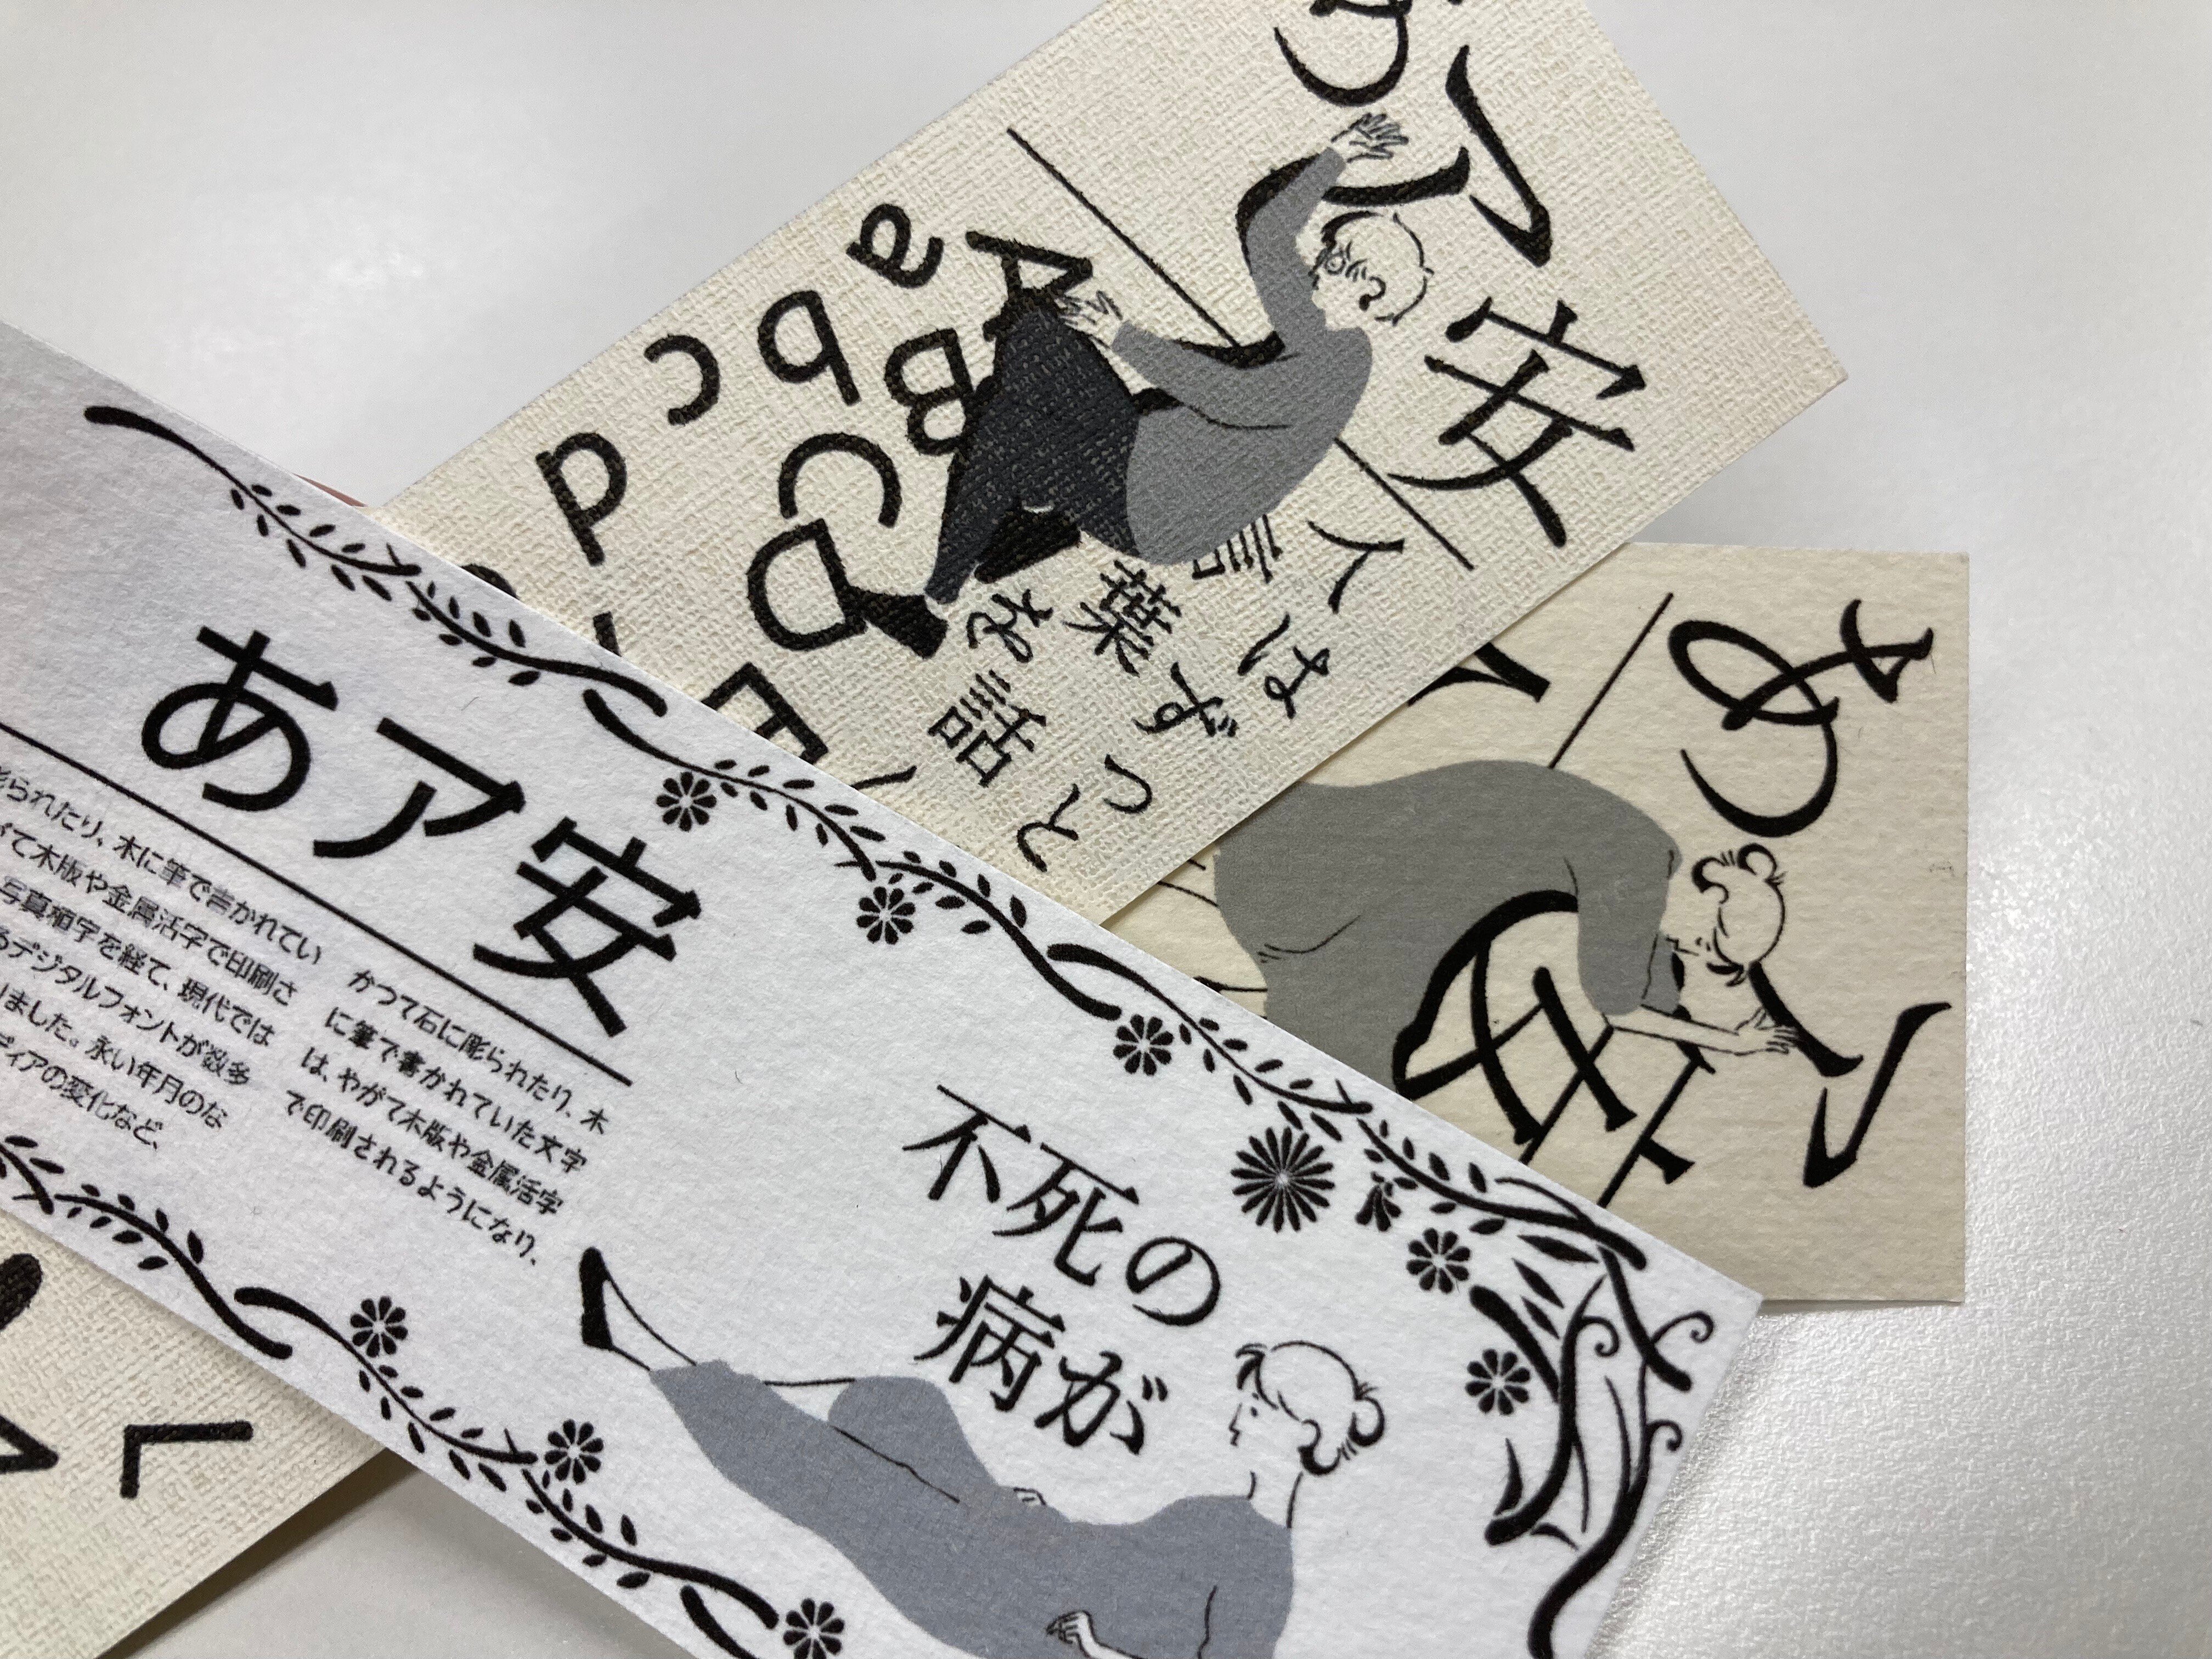 あア安
人はずっと
言葉を話
a b c d
A B C D E
あア
安
あア安
彫られたり、木に筆で書かれてい
て木版や金属活字で印刷さ
写真植字を経て、現代では
るデジタルフォントが数多
りました。永い年月のな
ディアの変化など、
かつて石に彫られたり、木
に筆で書かれていた文字
は、やがて木版や金属活字
で印刷されるようになり、
不死の
病が
L